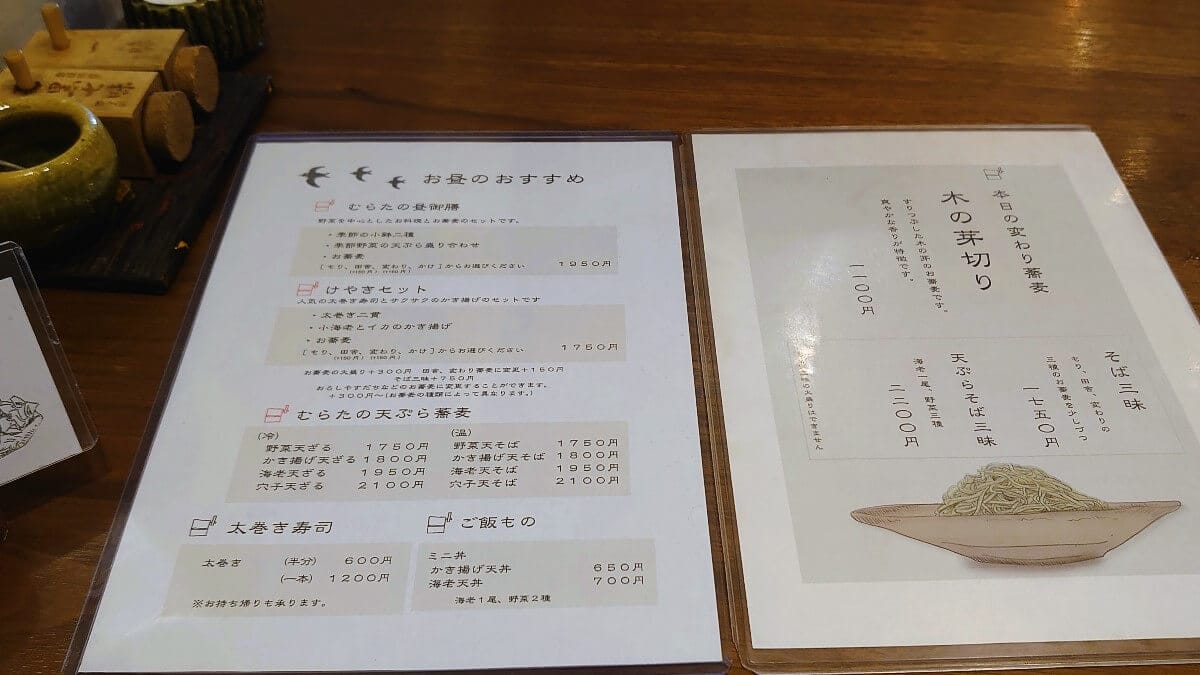 お昼のおすすめ
むらたの昼御膳
野菜を中心としたお料理とお蕎麦のセットです。
・季節の小鉢二種
・季節野菜の天ぷら盛り合わせ
・お蕎麦
[もり、田舎、変わり、かけ]からお選びください 1950円
(+150円) (+150円)
けやきセット
人気の太巻き寿司とサクサクのかき揚げのセットです
・太巻き二貫
・小海老とイカのかき揚げ
・お蕎麦
[もり、田舎、変わり、かけ]からお選びください 1750円
(+150円) (+150円)
お蕎麦の大盛り+300円 田舎、変わり蕎麦に変更+150円
そば三味+750円
おろしやすだちなどのお蕎麦に変更することができます。
+300円〜(お蕎麦の種類によって異なります。)
むらたの天ぷら蕎麦
(冷) (温)
野菜天ざる 1750円 野菜天そば 1750円
かき揚げ天ざる 1800円 かき揚げ天そば 1800円
海老天ざる 1950円 海老天そば 1950円
穴子天ざる 2100円 穴子天そば 2100円
太巻き寿司
太巻き (半分) 600円
(一本) 1200円
※お持ち帰りも承ります。
ご飯もの
ミニ丼
かき揚げ天丼 650円
海老天丼 700円
海老1尾、野菜2種
本日の変わり蕎麦
木の芽切り
すりつぶした木の芽のお蕎麦です。
爽やかな香りが特徴です。
一一〇〇円
そば三味
もり、田舎、変わりの
三種のお蕎麦を少しづつ
一七五〇円
天ぷらそば三味
海老一尾、野菜三種
二二〇〇円
三味の大盛りはできません